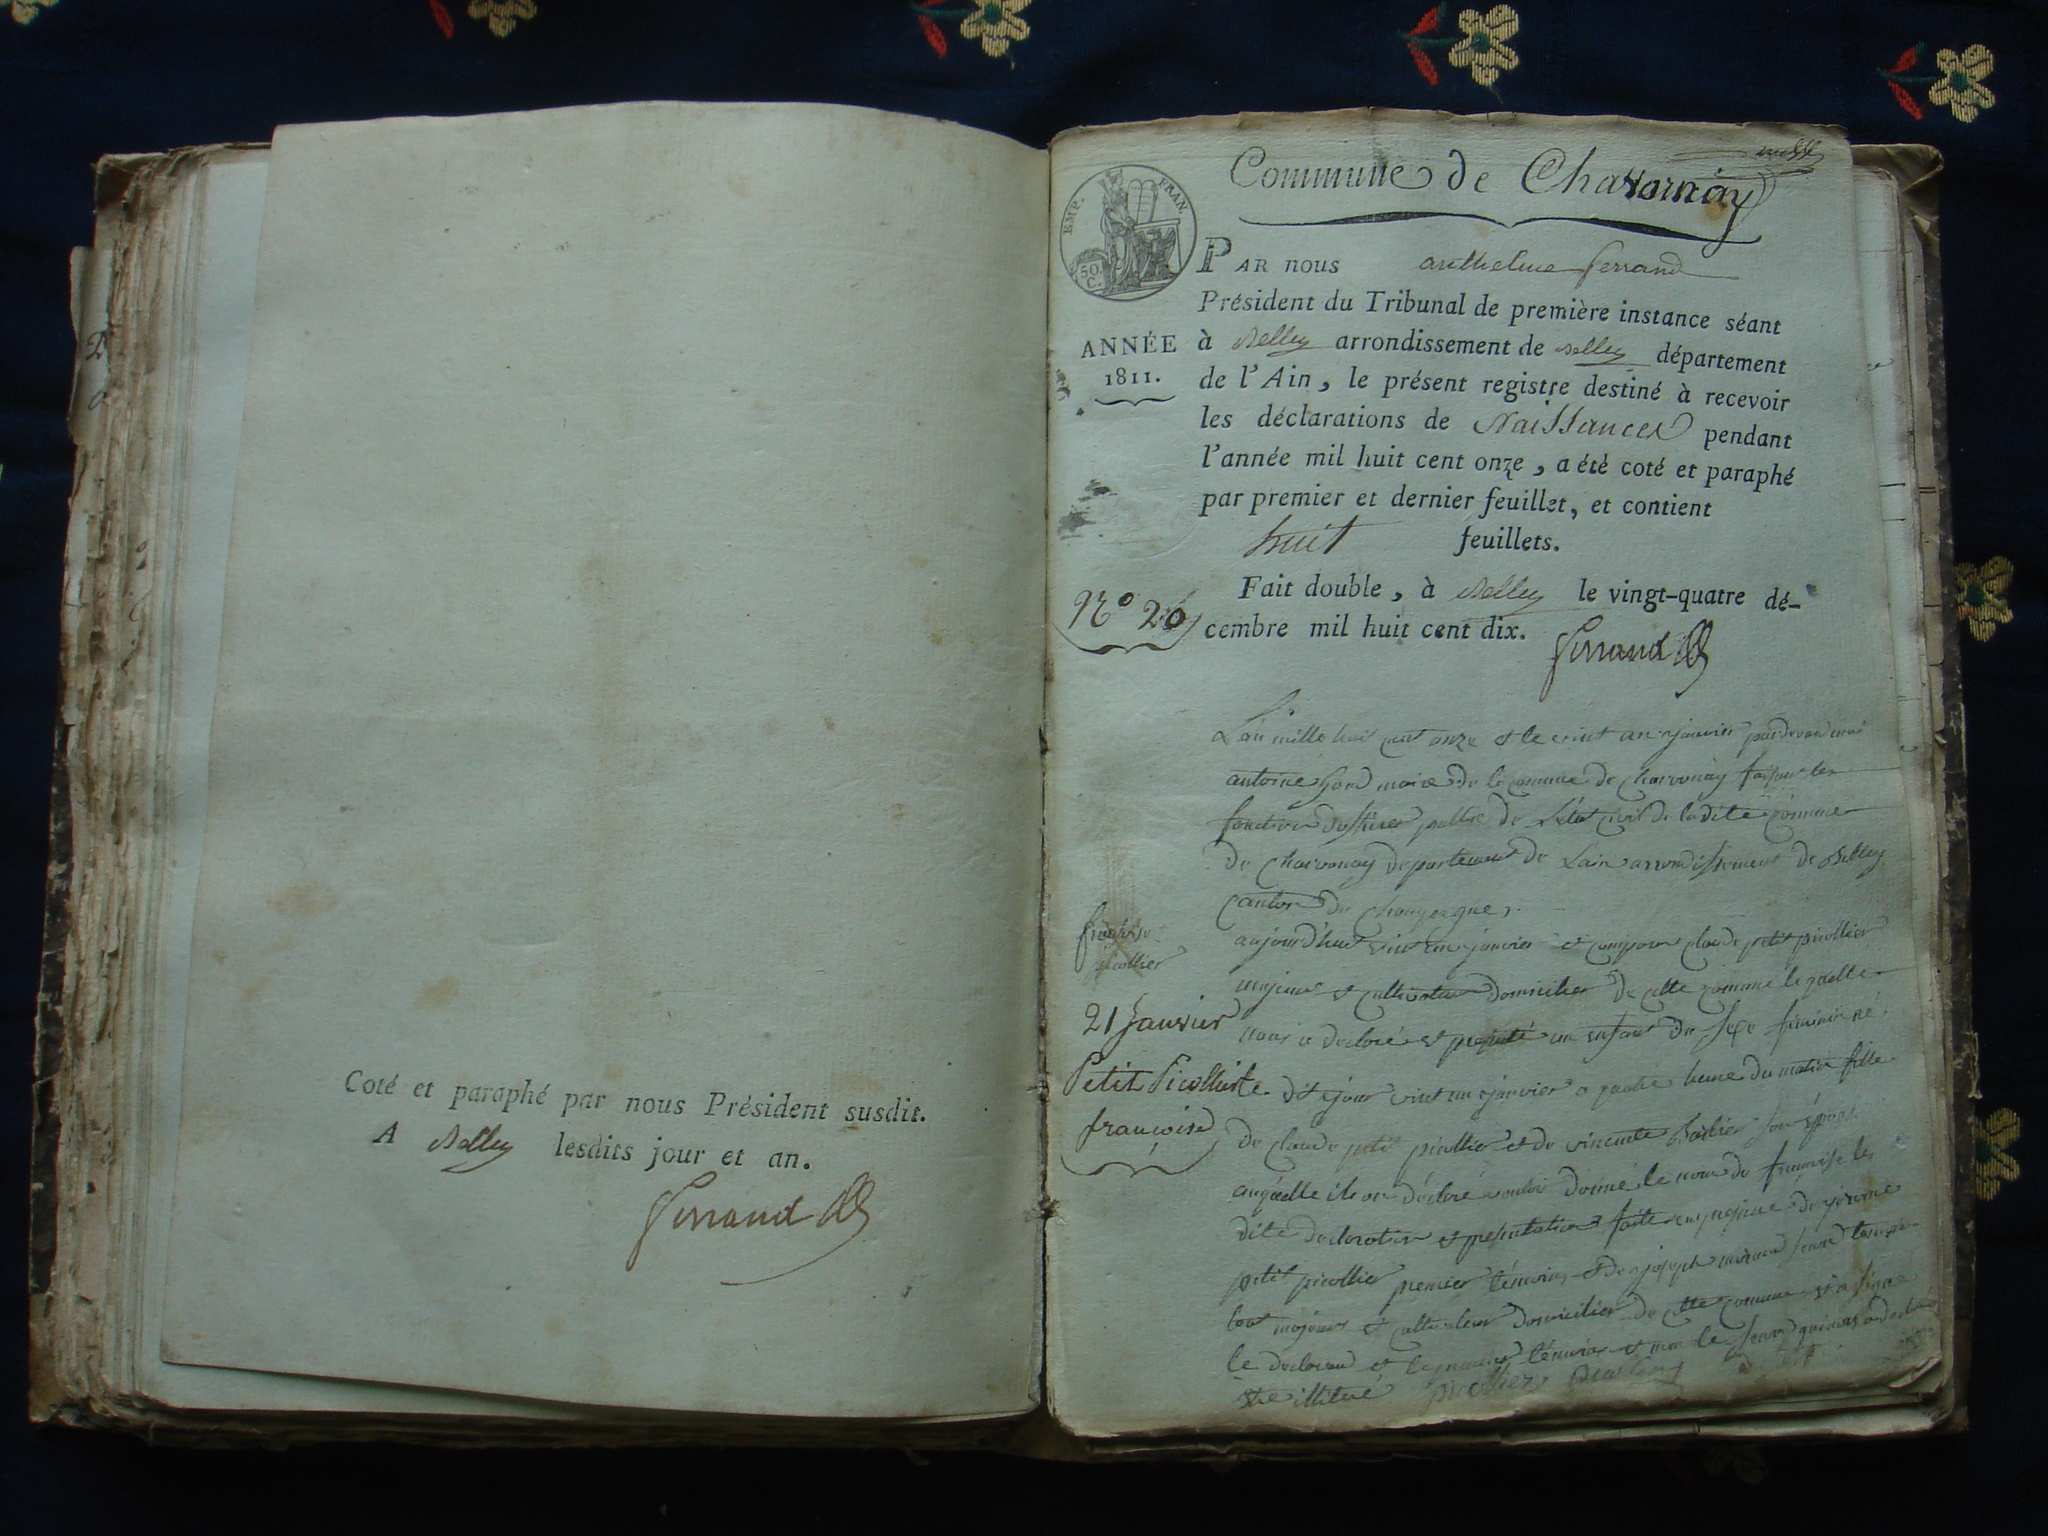 Coté et paraphé par nous Président susdit.
A Belley lesdits jour et an.
Ferrand
Commune de Charvornay
EMP. FRAN.
50 C.
PAR nous anthelme ferrand
Président du Tribunal de première instance séant
ANNÉE
1811.
à Belley arrondissement de Belley département
de l'Ain, le présent registre destiné à recevoir
les déclarations de Naissances pendant
l'année mil huit cent onze, a été coté et paraphé
par premier et dernier feuillet, et contient
huit feuillets.
N° 20
Fait double, à Belley le vingt-quatre dé-
cembre mil huit cent dix.
Ferrand
L'an mille huit cent onze et le vint un janvier pardevan moi
antoine maire de la commune de Charvonay faisant les
fonction public de L'état civil de la dite comune
de Charvonay departement de Lain arrondissement de Belley
canton de Champagne.
aujourd'huit vint un janvier et comparu claude petit picollier
majeur et cultivateur domicilier de cette comune lequelle
nous a declaré et presenté un enfant du sexe féminin né
dit jour vint un janvier a quatre heure du matin fille
de claude petit picollier et de vincente son épouse
auquelle ils on déclaré vouloir donné le nom de francoise les
dite declaration et presentation faite en presence de jerome
petit picollier premier témoins et de joseph second temoin
tout majeur et cultivateur domicilier de cette comune et a signé
le declarant et le premier témoins et non le second qui nous a declaré
etre illiteré picollier picollier
francoise
picollier
21 Janvier
Petit Picollier
francoise